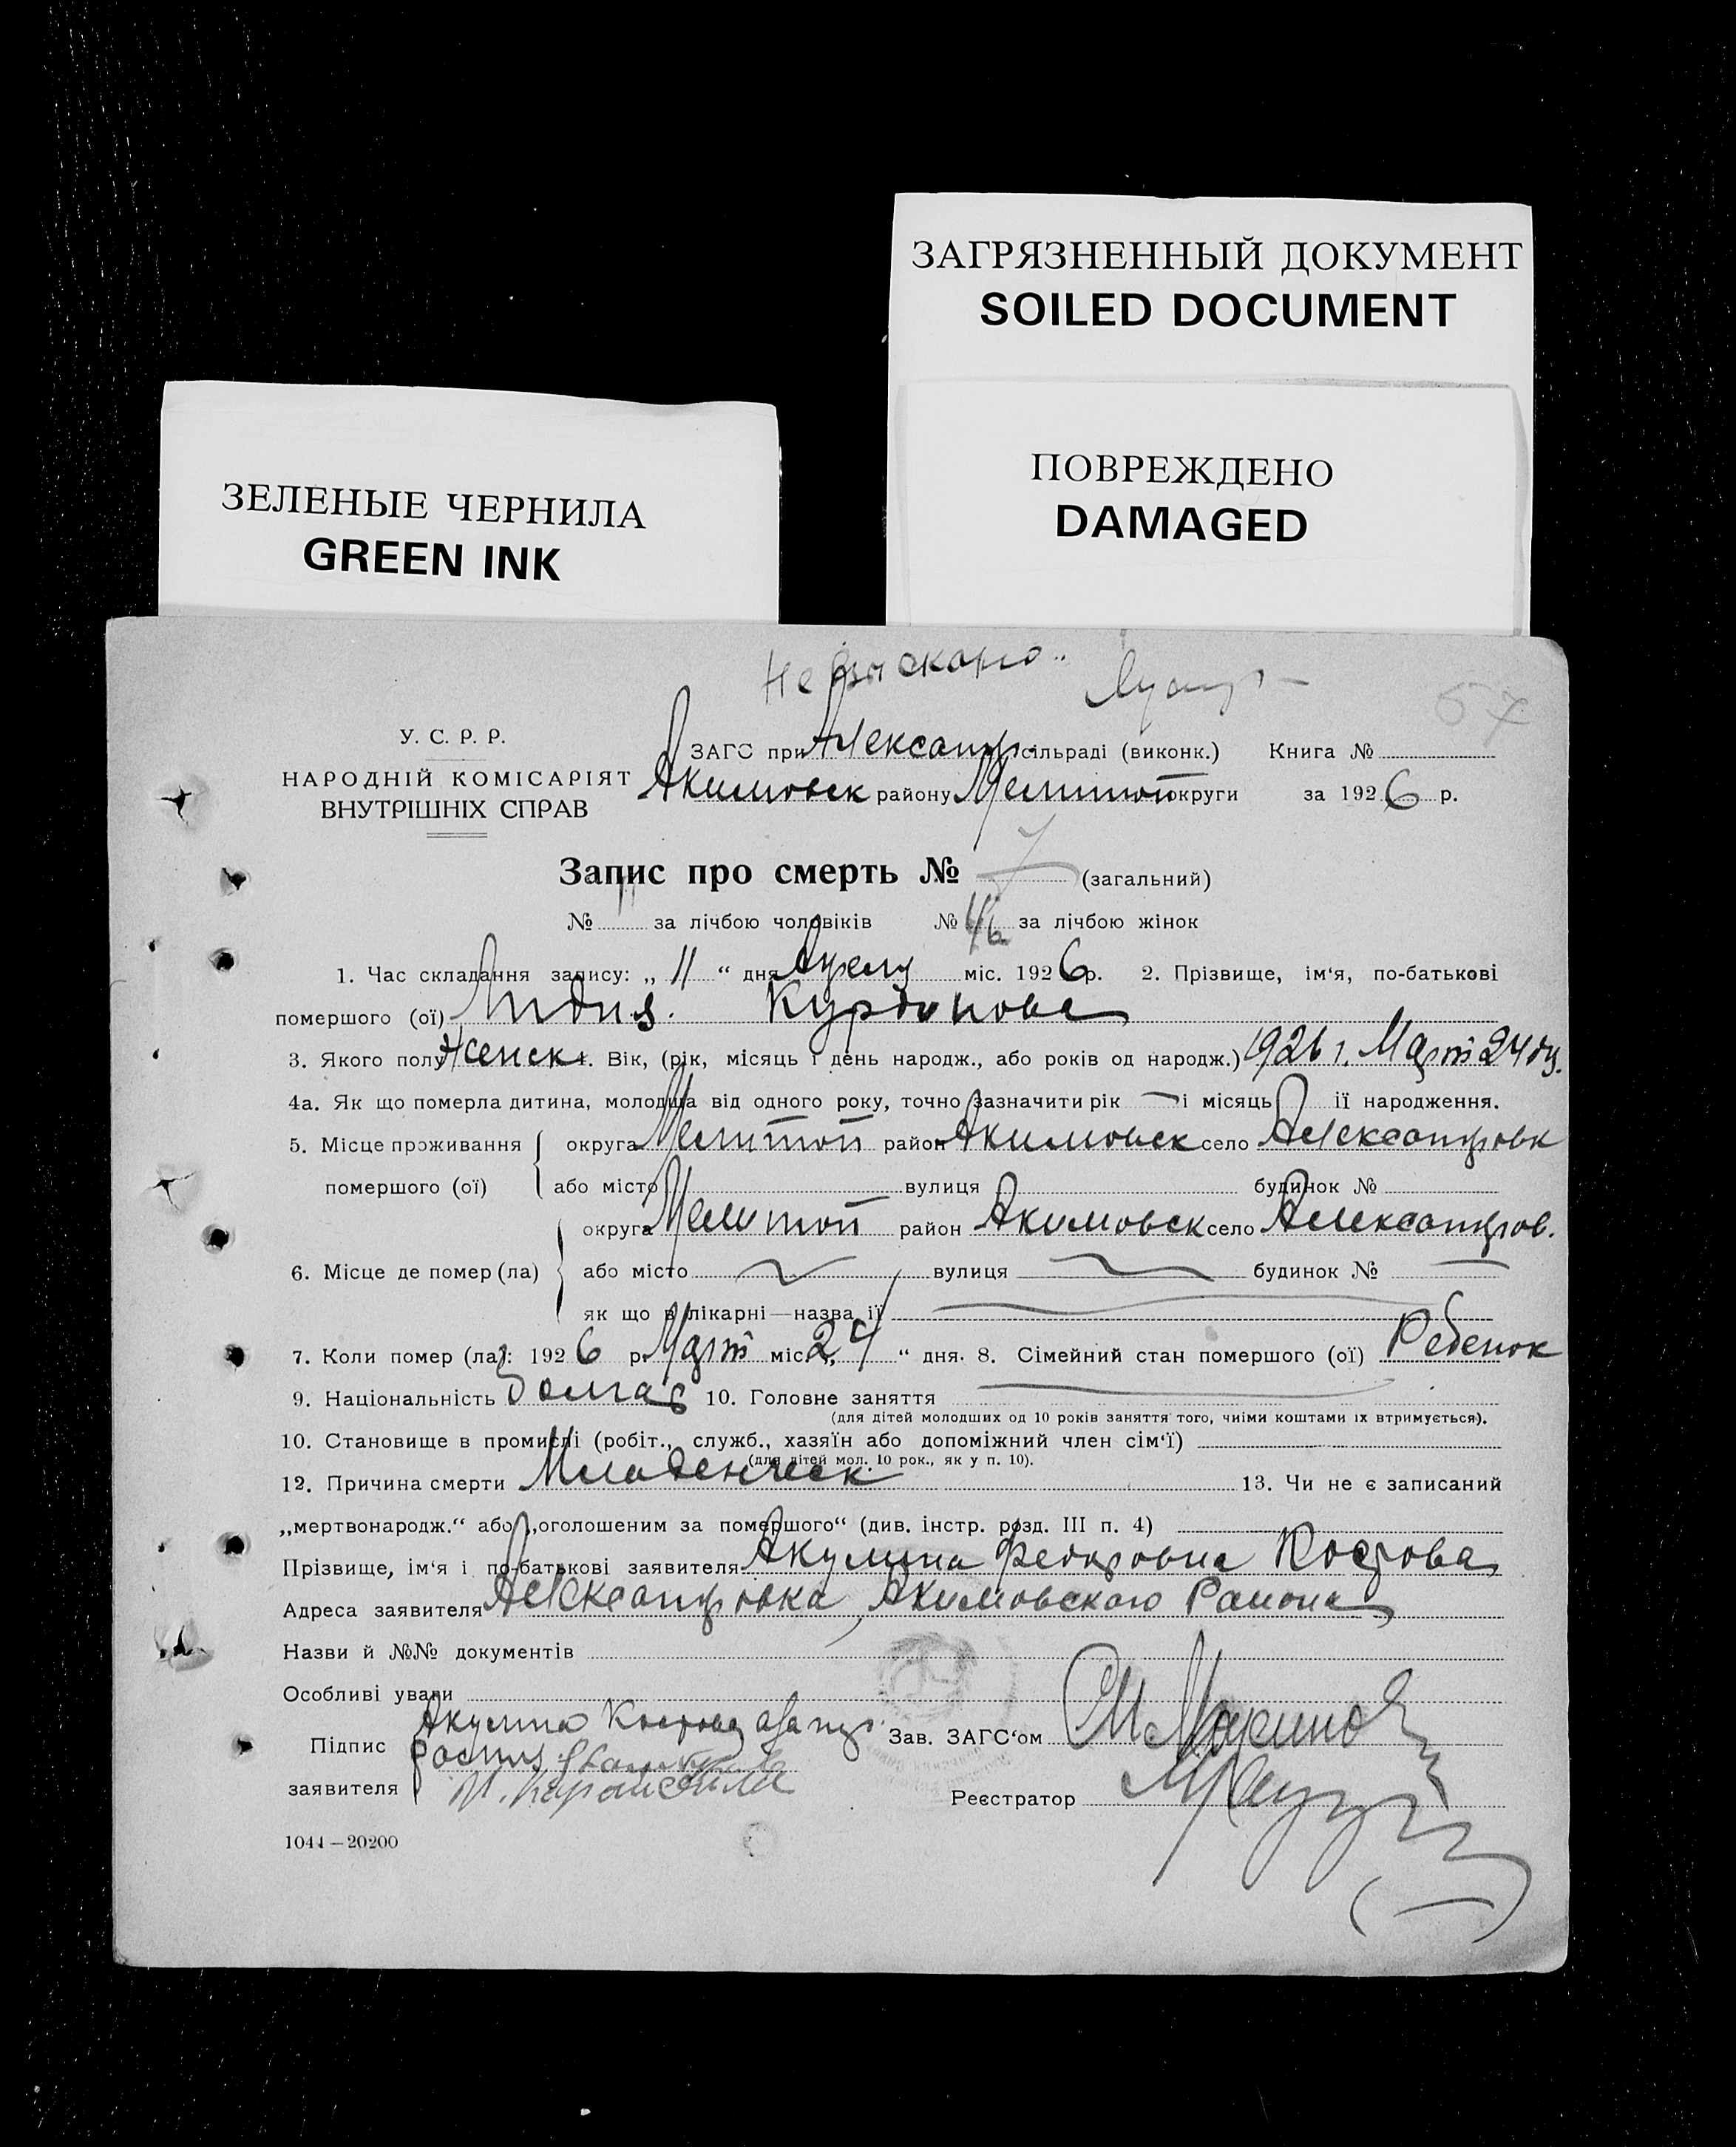 ЗАГРЯЗНЕННЫЙ ДОКУМЕНТ
SOILED DOCUMENT
ПОВРЕЖДЕНО
DAMAGED
ЗЕЛЕНЫЕ ЧЕРНИЛА
GREEN INK
57
У. С. Р. Р.
НАРОДНІЙ КОМІСАРІЯТ
ВНУТРІШНІХ СПРАВ
ЗАГС при Александр. сільраді (виконк.) Книга №
Акимовск району Мелитоп округи за 1926 р.
Запис про смерть № 7 (загальний)
№ за лічбою чоловіків № за лічбою жінок
1. Час складання запису: „ 11 “ дня міс. 1926 р. 2. Прізвище, ім‘я, по-батькові
помершого (ої) Лидия.
3. Якого полу Женск 4. Вік, (рік, місяць і день народж., або років од народж.) 1926 г. Март 24 дн.
4а. Як що померла дитина, молодша від одного року, точно зазначити рік — і місяць її народження.
5. Місце проживання округа Мелитоп район Акимовск село Александровк
помершого (ої) або місто вулиця будинок №
округа Мелитоп район Акимовск село Александров.
6. Місце де помер (ла) або місто вулиця будинок № —
як що в лікарні—назва її
7. Коли помер (ла): 1926 р. Март міс. „ 24 “ дня. 8. Сімейний стан помершого (ої) Ребенок
9. Національність Болгар 10. Головне заняття
(для дітей молодших од 10 років заняття того, чиїми коштами їх втримується).
10. Становище в промислі (робіт., служб., хазяїн або допоміжний член сім‘ї)
(для дітей мол. 10 рок., як у п. 10).
12. Причина смерти Младенческ 13. Чи не є записаний
„мертвонародж.“ або „оголошеним за помершого“ (див. інстр. розд. III п. 4)
Прізвище, ім‘я і по-батькові заявителя Акулина Федоровна Костова
Адреса заявителя Александровка, Акимовского Района
Назви й №№ документів
Особливі уваги
Підпис Акулина Костова
заявителя
Зав. ЗАГС‘ом
Реєстратор
1044—20200